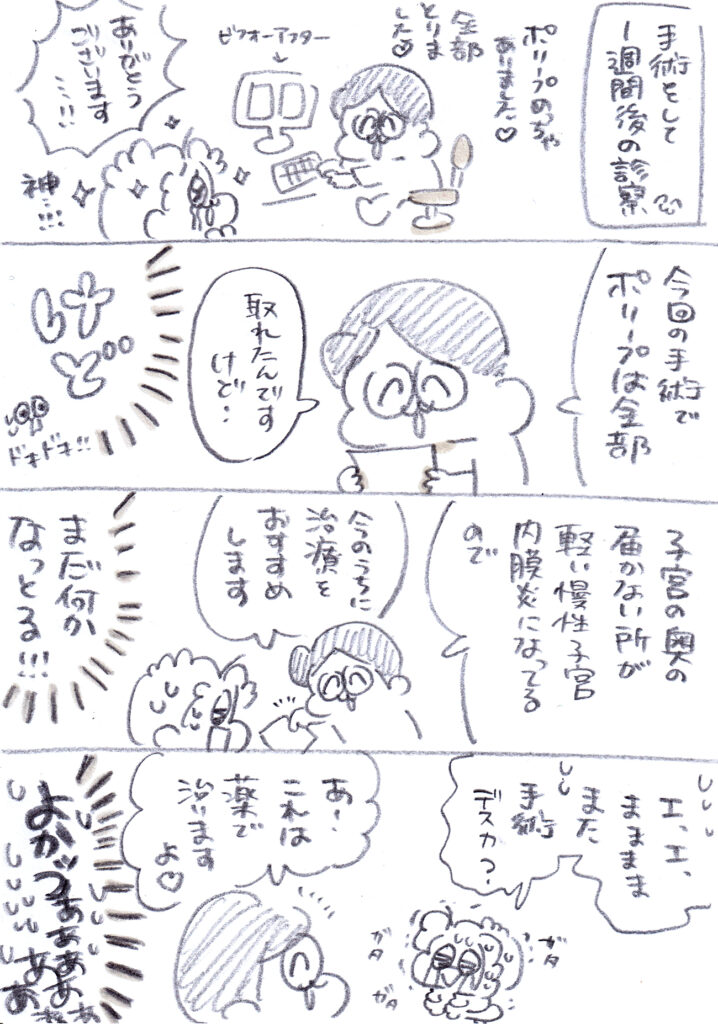 手術をして
一週間後の診察
ポリープめっちゃ
ありました♡
全部
とりま
した♡
ビフォーアフター
↓
ありがとう
ございます
、、、!!
神…!!!
今回の手術で
ポリープは全部
取れたんです
けど…
けど
ドキドキ!!
子宮の奥の
届かない所が
軽い慢性子宮
内膜炎になってる
ので
今のうちに
治療を
おすすめ
します
まだ何か
なっとる!!!
エ、エ、
ままままま
また
手術
デスカ?
ガタ
ガタ
ガタ
あ、
これは
薬で
治ります
よ♡
よかッつ
ぁぁぁぁ
ああ
あぁぁ